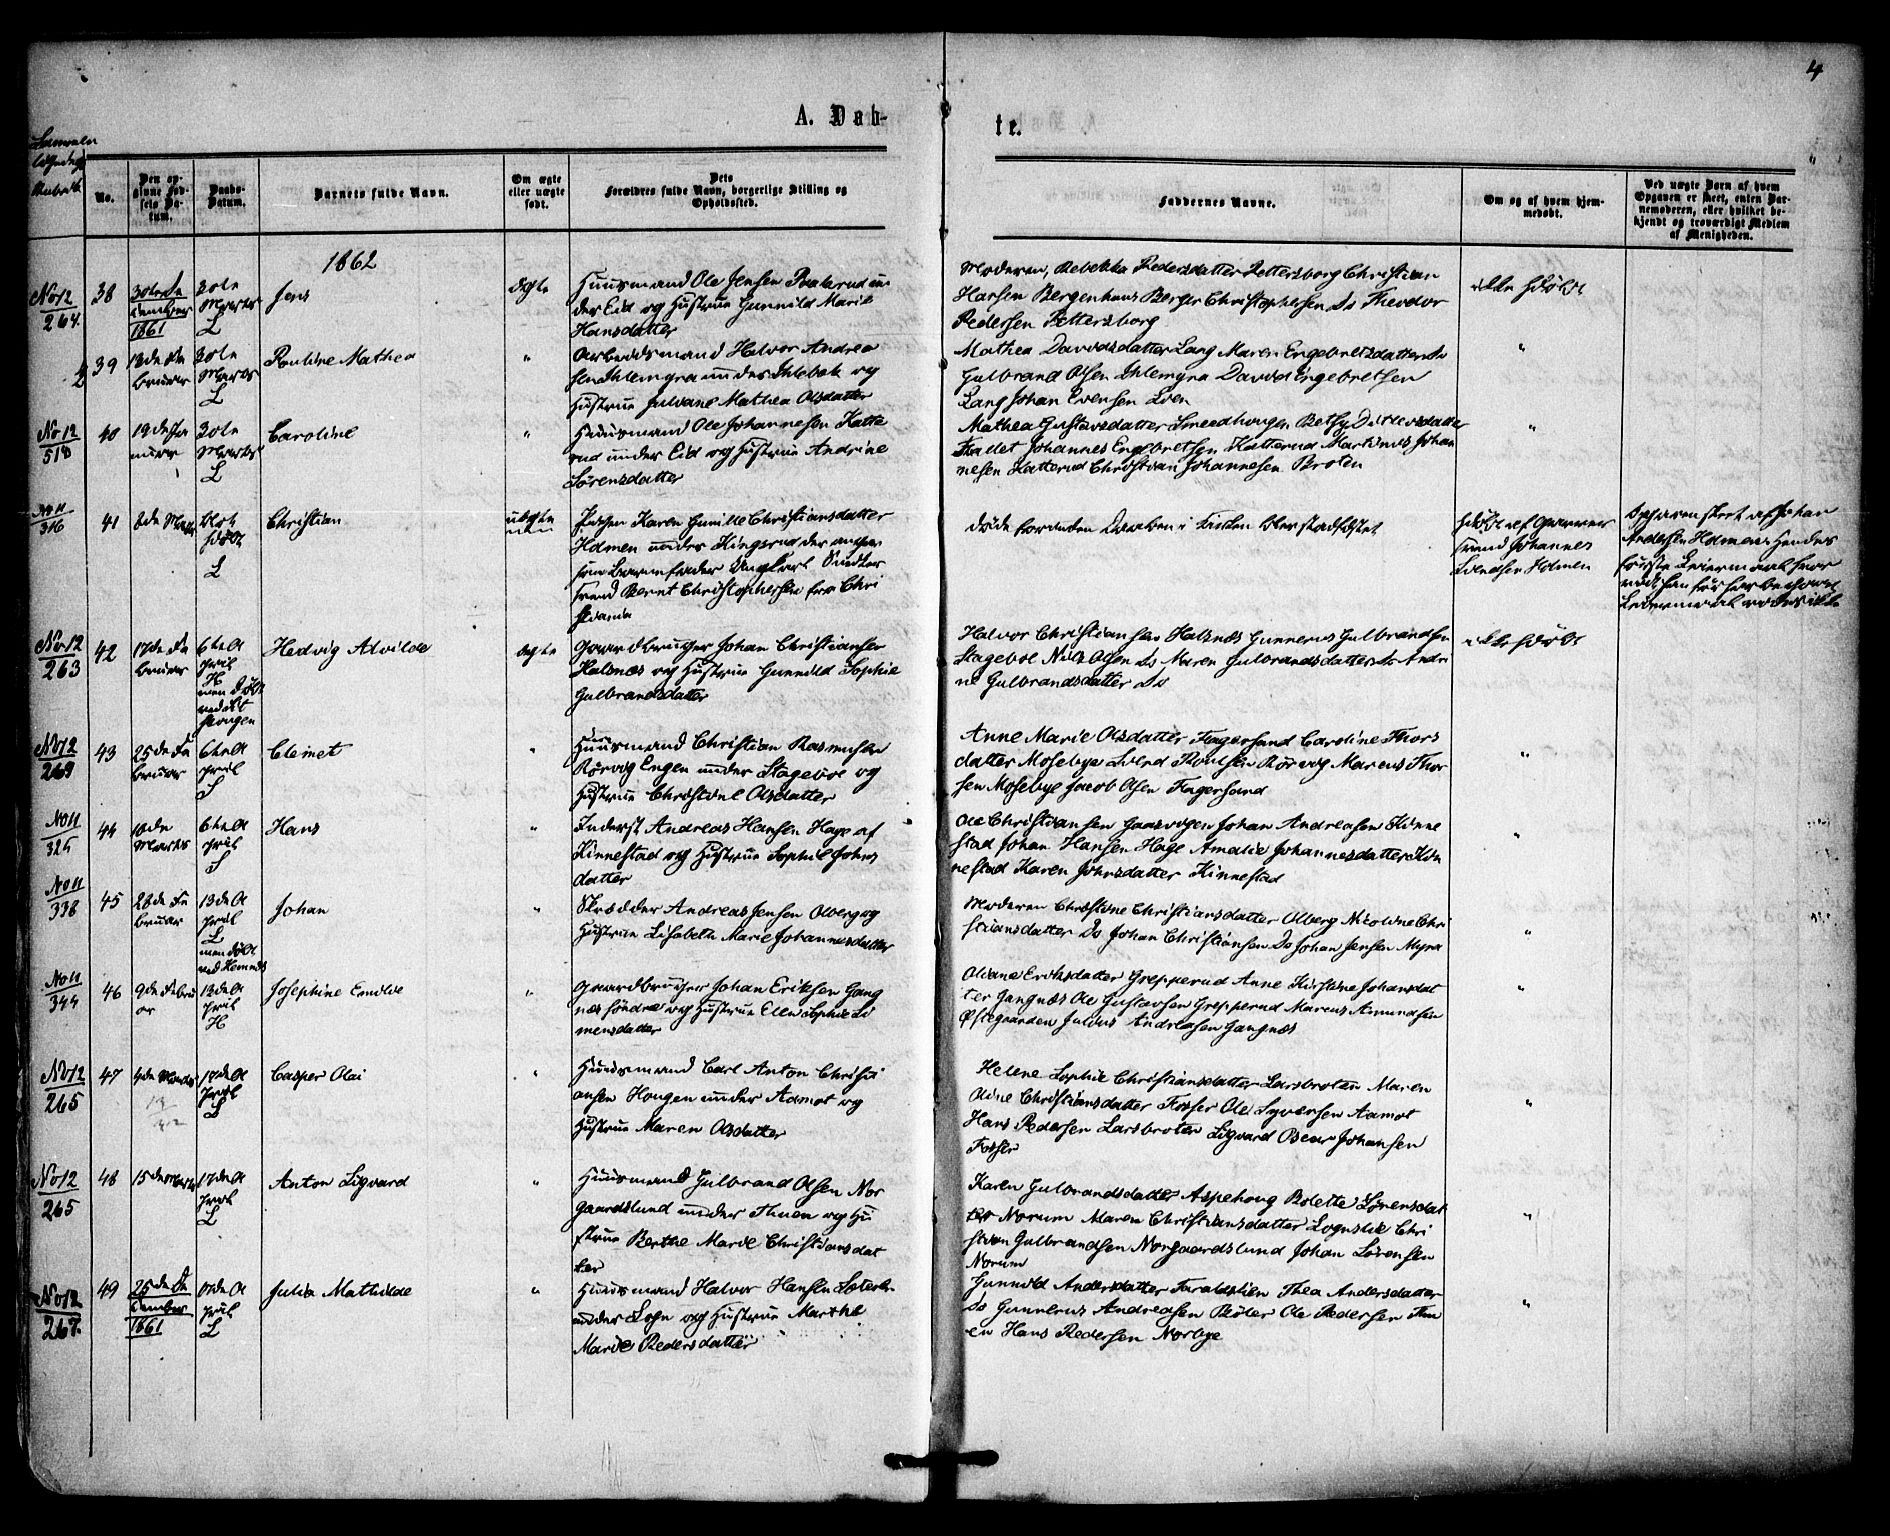 4
A. Døb-
te.
No.
Den op-
givne Fød-
sels Da-
tum.
Daabs-
Datum.
Barnets fulde Navn.
Om ægte
eller uægte
født.
Dets
Forældres fulde Navn, borgerlige Stilling og
Opholdssted.
Faddernes Navne.
Om og af hvem hjem-
medøbt.
Ved uægte Børn af hvem
Opgaven er skeet, enten Bar-
nemoderen, eller hvilket be-
kjendt og troværdigt Medlem
af Menigheden.
1862
No 12
264.
38
30te De
cember
1861
30te
Marts
L
Jens
Ægte
Huusmand Ole Jensen un
der Eid og Hustrue Gunnild Marie
Hansdatter
Moderen, Rebekka Pedersdatter Pettersborg Christian
Hansen Bergenhaus Berger Christophersen Ds Theodor
Pedersen Pettersborg
ikke hdøbt
39
13de Fe
bruar
30te
Marts
L
Pauline Mathea
"
Arbeidsmand Halvor Andrea
sen Ihlemyra under Ihlebek og
Hustrue Juliane Mathea Olsdatter
Mathea Davidsdatter Lang Maren Engebretsdatter Ds
Gulbrand Olsen Ihlemyra David Engebretsen
Lang Johan Evensen
"
No 12
518
40
19de Ja
nuar
30te
Marts
L
Caroline
"
Huusmand Ole Johannesen Katte
rud under Eid og Hustrue Andrine
Sørensdatter
Mathea Gustavsdatter Smedhougen Betsy Ditlevsdatter
Stadet Johannes Engebretsen Katterud Martinus Johan
nesen Katterud Christian Johannesen Broten
"
No 11
316
41
8de Marts
blot
hdøbt
L
Christian
uægte
Pigen Karen Gunille Christiansdatter
Holmen under Kingsrud der angav
som Barnefader Ungkarl
svend Bernt Christophersen fra Chri
stiania
døde forinden Daaben i Kirken blev stadfæstet
hdøbt af
svend Johannes
Svendsen Holmen
Opgaven skeet af Johan
Andersen Holmen Hendes
første Leiermaal hvor
No 12
263
42
17de Fe
bruar
6te A
pril
H
men døbt
ved
Hougen
Hedvig Alvilde
ægte
Gaardbruger Johan Christiansen
Halsnæs og Hustrue Gunnild Sophie
Gulbrandsdatter
Halvor Christiansen Halsnæs Gunnerus Gulbrandsen
Stageboe Nils Olsen Ds Maren Gulbrandsdatter Ds Andri
ne Gulbrandsdatter Ds
ikke hdøbt
No 12
269
43
25de Fe
bruar
6te A
pril
S
Clemet
"
Huusmand Christian Rasmusen
Rørvig Engen under Stageboe og
Hustrue Christine Olsdatter
Anne Marie Olsdatter Fagersand Caroline Thors
datter Mosebye Svend Poulsen Rørvig Marcus Thor
sen Mosebye Jacob Olsen Fagersand
"
No 11
325
44
10de
Marts
6te A
pril
S
Hans
"
Inderst Andreas Hansen Hage af
Kinnestad og Hustrue Sophie Johns
datter
Ole Christiansen Gaasvigen Johan Andreasen Kinne
stad Johan Hansen Hage Amalie Johannesdatter Kin
nestad Karen Johnsdatter Kinnestad
"
No 11
338
45
28de Fe
bruar
13de A
pril
L
men døbt
ved Hemnes
Johan
"
Skrædder Andreas Jensen Olberg og
Hustrue Lisabeth Marie Johannesdatter
Moderen Christine Christiansdatter Olberg Nicoline Chri
stiansdatter Ds Johan Christiansen Ds Johan Jensen Myra
"
No 11
344
46
9de Febru
ar
13de A
pril
H
Josephine Emilie
"
Gaardbruger Johan Eriksen Gang
næs søndre og Hustrue Ellen Sophie Si
mensdatter
Oliane Eriksdatter Grepperud Anne Kirstine Johansdat
ter Gangnæs Ole Gustavsen Grepperud Marcus Amundsen
Østegaarden Julius Andreasen Gangnæs
"
No 12
265
47
4de Marts
17de A
pril
L
Casper Olai
"
Huusmand Carl Anton Christi
ansen Hougen under Aamot og
Hustrue Maren Olsdatter
Helene Sophie Christiansdatter Larsbroten Maren
Oline Christiansdatter Fosser Ole Syversen Aamot
Hans Pedersen Larsbroten Sigvard Johansen
Fosser
"
No 12
265
48
15de Marts
17de A
pril
L
Anton Sigvard
"
Huusmand Gulbrand Olsen Nor
gaardslund under Thuen og Hu
strue Berthe Marie Christiansdat
ter
Karen Gulbrandsdatter Aspehoug Bolette Sørensdat
ter Norum Maren Christiansdatter Chri
stian Gulbrandsen Norgaardslund Johan Sørensen
Norum
"
No 12
267.
49
25de De
cember
1861
17de A
pril
L
Julia Mathilde
"
Huusmand Halvor Hansen
under og Hustrue Marthe
Marie Pedersdatter
Gunnild Andersdatter Faraldslien Thea Andersdatter
Ds Gunnerus Andreasen Bøler Ole Pedersen Thu
en Hans Pedersen Norbye
"